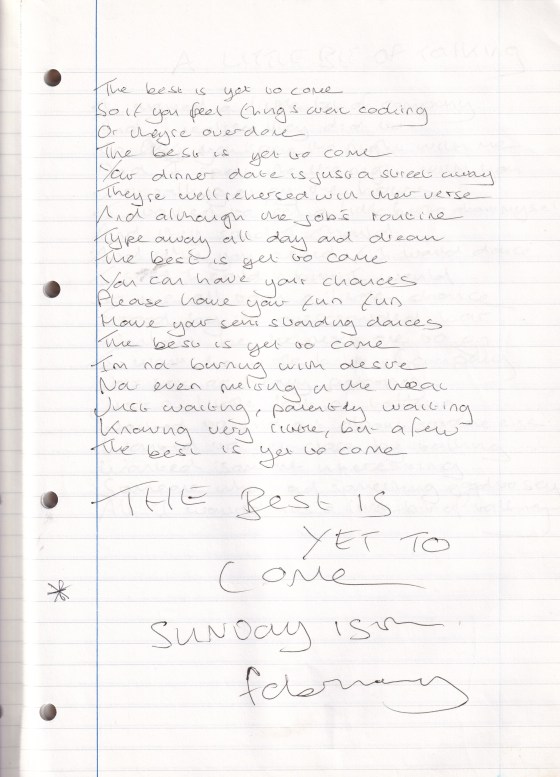 The best is yet to come
So if you feel things over cooking
Or they're overdone
The best is yet to come
Your dinner date is just a street away
They're well rehersed with their verse
And although the job's routine
Type away all day and dream
The best is yet to come
You can have your chances
Please have your fun fun
Have your semi standing dances
The best is yet to come
I'm not burning with desire
Not even melting in the heat
Just waiting, patiently waiting
Knowing very little, but a few
The best is yet to come
THE BEST IS
YET TO
COME
*
SUNDAY 15th
february